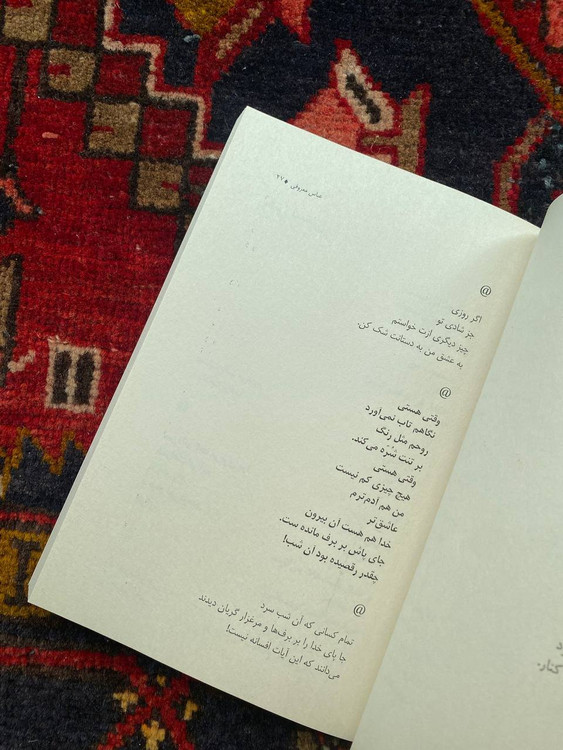 عباس معروفی ● ۲۷
@
اگر روزی
جز شادی تو
چیز دیگری ازت خواستم
به عشق من به دستانت شک کن.
@
وقتی هستی
نگاهم تاب نمی‌آورد
روحم مثل رنگ
بر تنت شُرّه می‌کند.
وقتی هستی
هیچ چیزی کم نیست
من هم آدم‌ترم
عاشق‌تر
خدا هم هست آن بیرون
جای پاش بر برف مانده ست.
چقدر رقصیده بود آن شب!
@
تمام کسانی که آن شب سرد
جا پای خدا را بر برف‌ها و مرغزار گریان دیدند
می‌دانند که این آیات افسانه نیست!